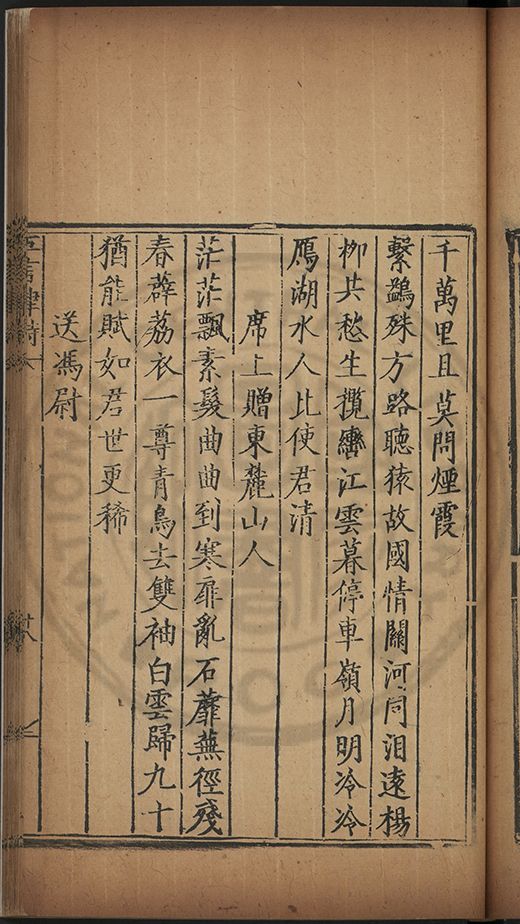 千萬里且莫問煙霞
繫鷁殊方路聽猿故國情關河同泪遠楊
柳共愁生攬轡江雲暮停車嶺月明冷冷
鴈湖水人比使君清
席上贈東麓山人
茫茫飄素髮曲曲到寒扉亂石蘼蕪徑殘
春薜荔衣一尊青鳥去雙袖白雲歸九十
猶能賦如君世更稀
送馮尉
五言律詩